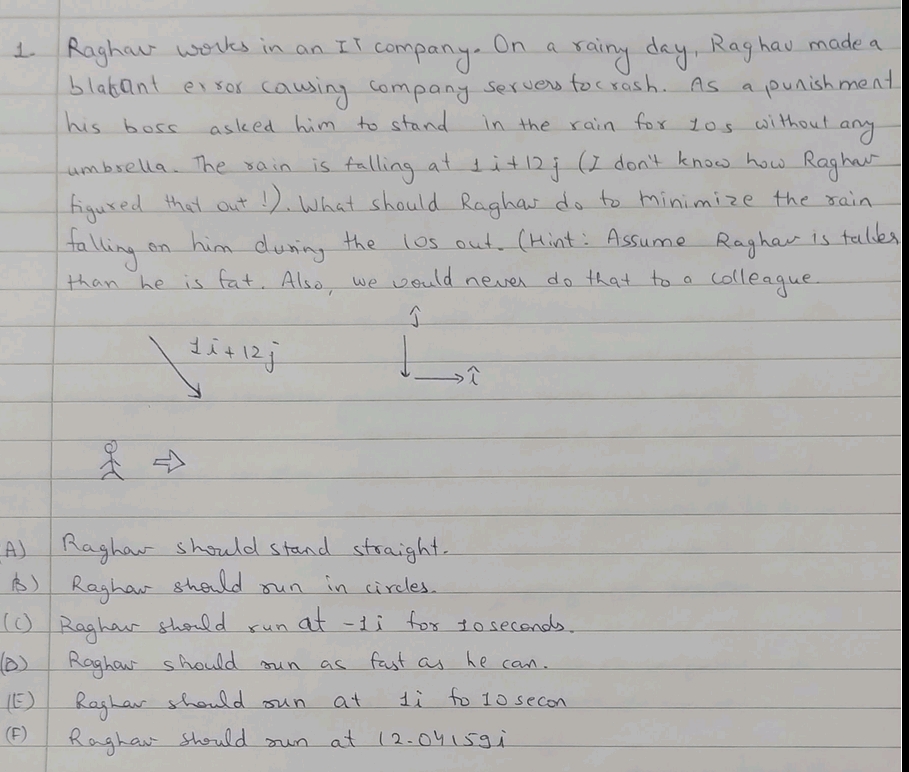 1. Raghav works in an IT company. On a rainy day, Raghav made a
blatant error causing company servers to crash. As a punishment
his boss asked him to stand in the rain for 10s without any
umbrella. The rain is falling at 1i+12j (I don't know how Raghav
figured that out!). What should Raghav do to minimize the rain
falling on him during the 10s out. (Hint: Assume Raghav is taller
than he is fat. Also, we would never do that to a colleague.
ĵ
1i+12j
î
A) Raghav should stand straight.
B) Raghav should run in circles.
(C) Raghav should run at -1i for 10 seconds.
(D) Raghav should run as fast as he can.
(E) Raghav should run at 1i fo 10 secon
(F) Raghav should run at 12.04159i